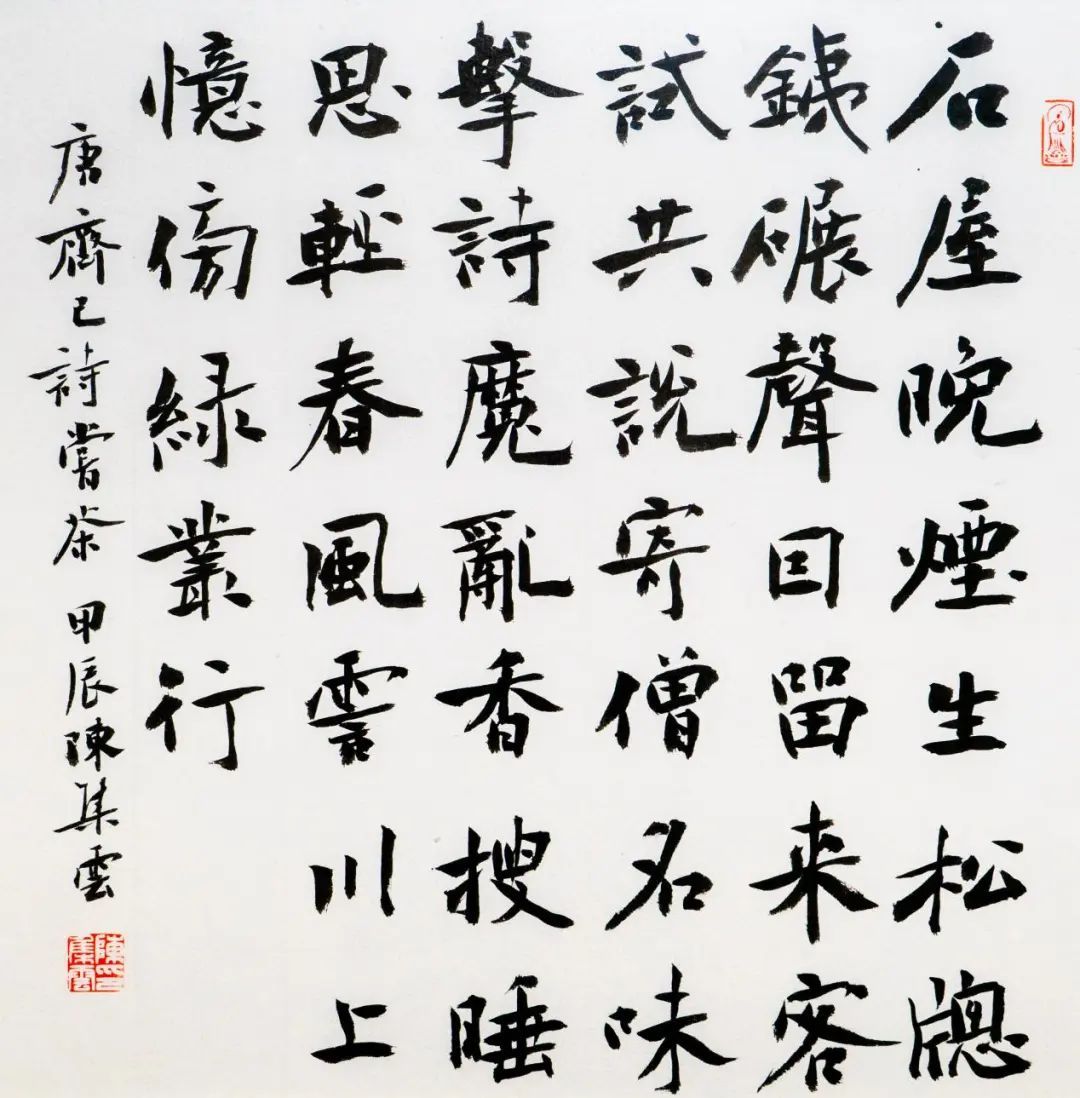 石屋晚煙生松牕
銕碾聲囙留來客
試共說寄僧名味
擊詩魔亂香搜睡
思輕春風霅川上
憶傍綠叢行
唐齊己詩嘗茶 甲辰陳集雲
陳印集雲